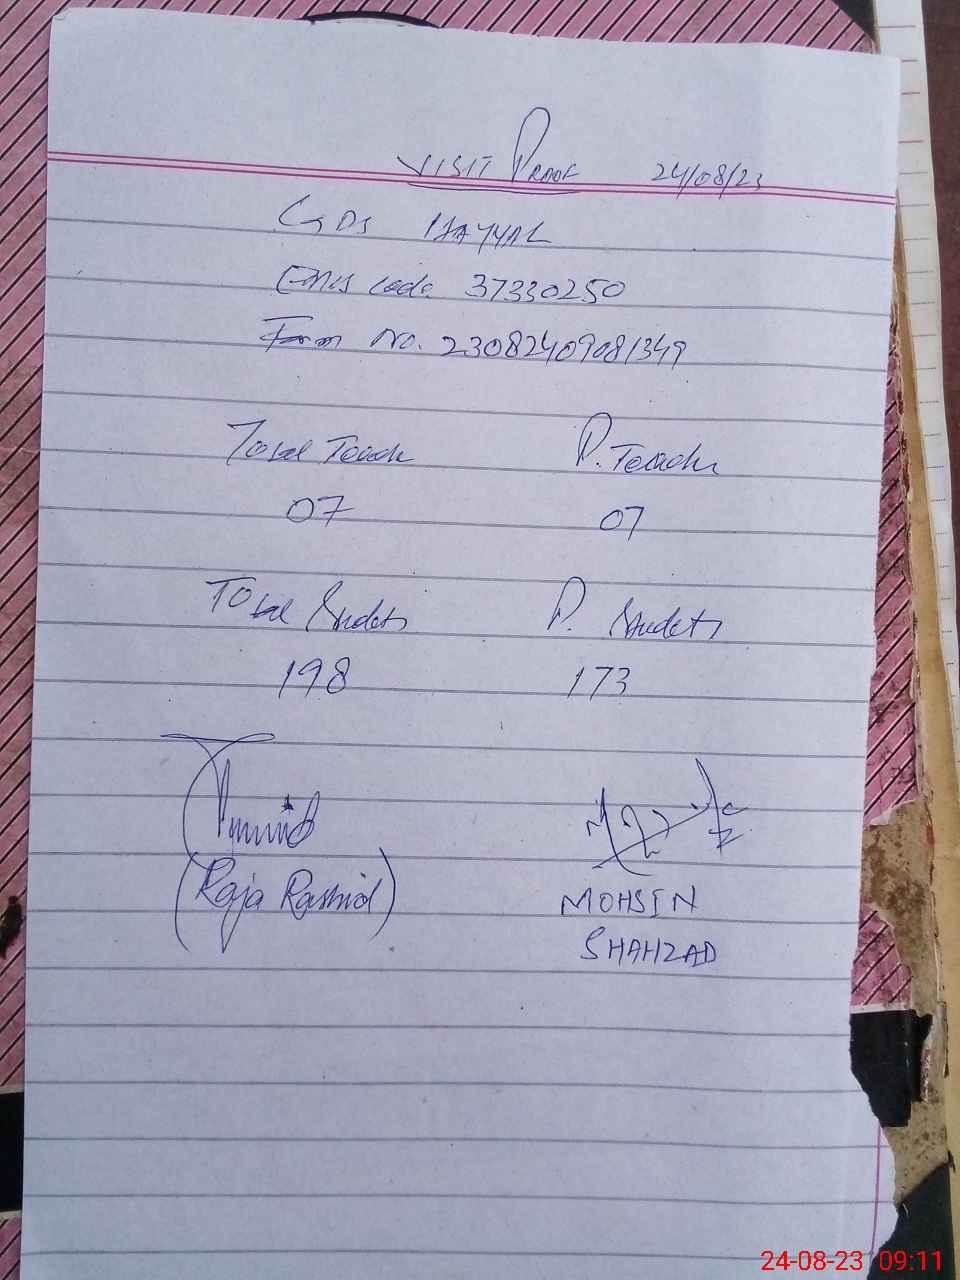 VISIT PROOF 24/08/23
GPS HAYYAL
Emis code 37330250
Form No. 23082409081349
Total Teach P. Teacher
07 07
Total Students P. Students
198 173
(Raja Rashid) MOHSIN
SHAHZAD
24-08-23 09:11